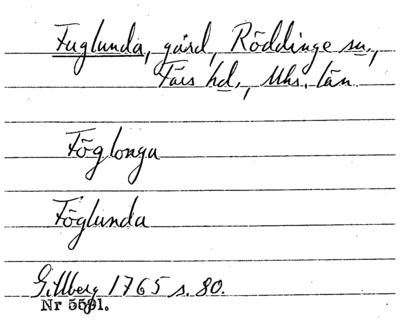 Fuglunda, gård, Röddinge sn.,
Färs hd., Mhs. län
Föglonga
Föglunda
Gillberg 1765 s. 80.
Nr 5591.